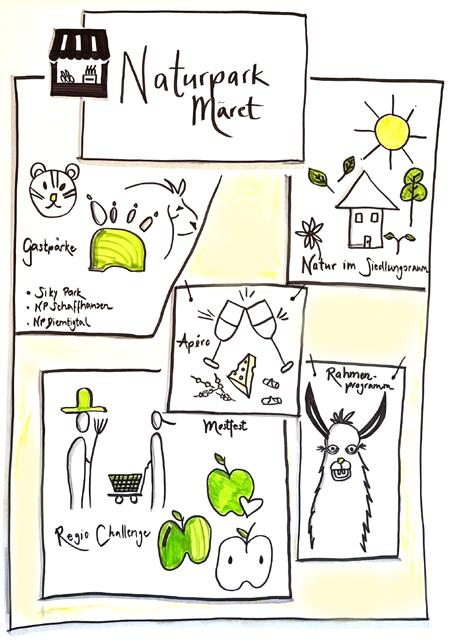 Naturpark
Märet
Gastpärke
• Siky Park
• NP Schaffhausen
• NP Diemtigtal
Natur im Siedlungsraum
Apéro
Rahmen-
programm
Mostfest
Regio Challenge